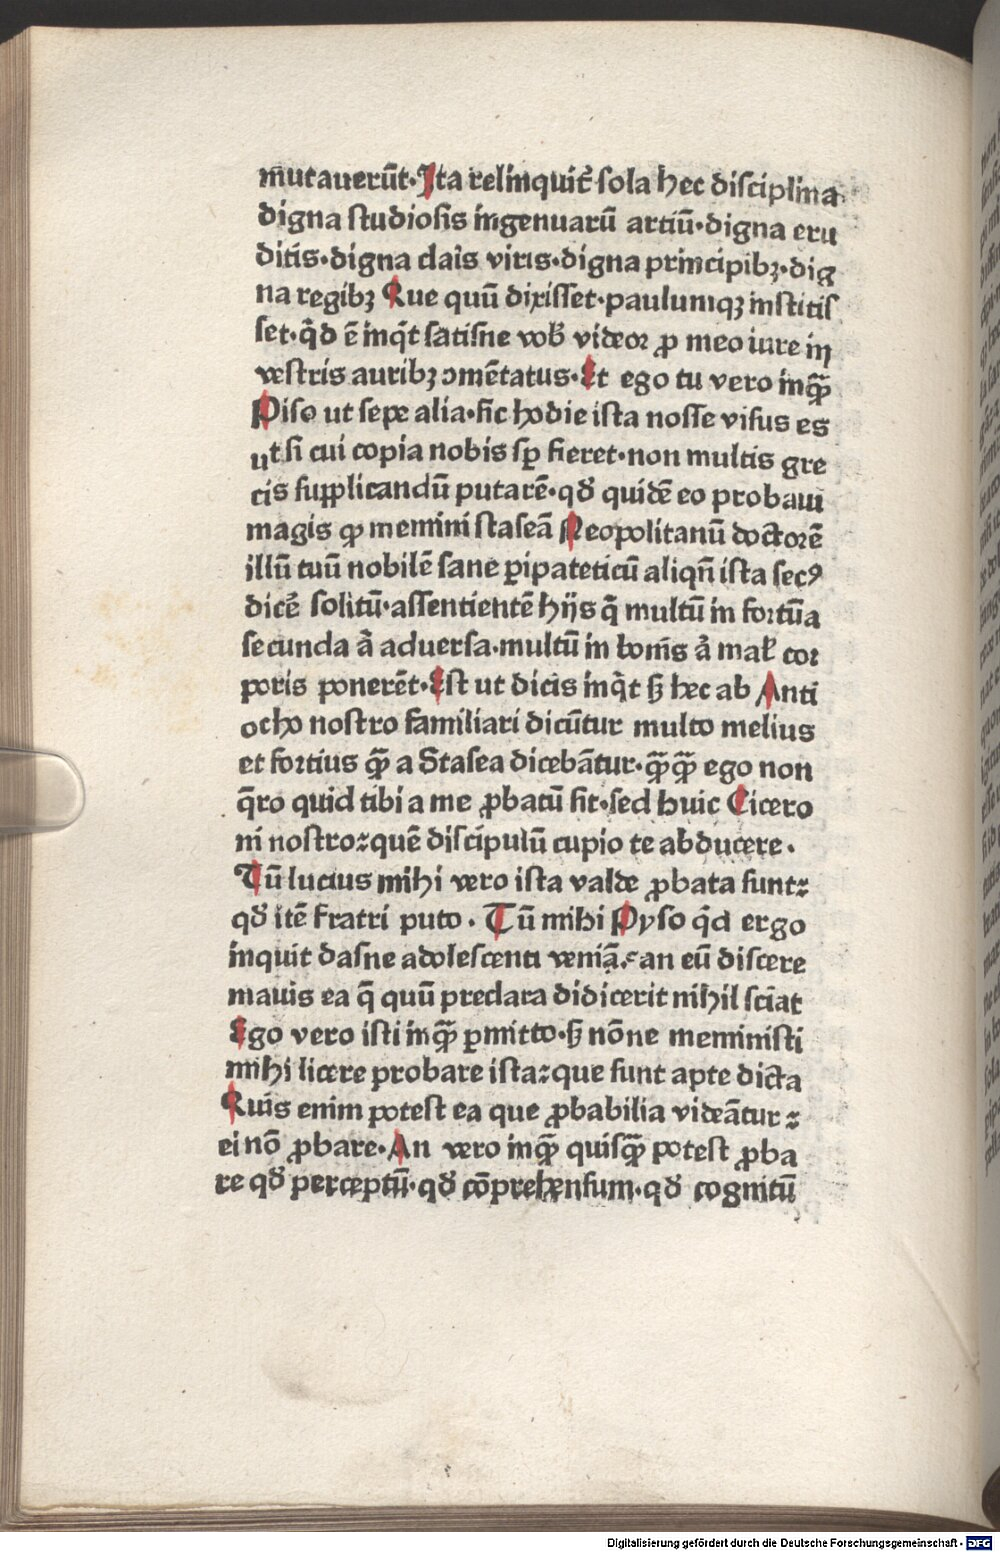 mutauerūt·Ita relinquit᷑ sola hec disciplina
digna studiosis ingenuarū artiū·digna eru
ditis·digna claris viris·digna principibꝫ·dig
na regibꝫ Que quū dixisset·paulumqꝫ institis
set·qd̄ ē inqͥt satisne vob̄ videor ꝓ meo iure in
vestris auribꝫ ↄmētatus·Et ego tu vero inqͣꝫ
Piso ut sepe alia·sic hodie ista nosse visus es
ut si cui copia nobis sꝑ fieret·non multis gre
cis supplicandū putarē·qd̄ quidē eo probaui
magis qꝫ memini staseā Neopolitanū doctorē
illū tuū nobilē sane ꝑipateticū aliqn̄ ista secꝰ
dicē᷑ solitū·assentientē hijs q̄ multū in fortūa
secunda ā aduersa·multū in bonis ā mal̄ cor
poris ponerēt·Est ut dicis inqͥt sꝫ hec ab Anti
ocho nostro familiari dicūtur multo melius
et fortius qͣꝫ a Stasea dicebātur·qͣꝫqͣꝫ ego non
q̄ro quid tibi a me ꝓbatū sit·sed huic Cicero
ni nostro: quē discipulū cupio te abducere·
Tū lucius mihi vero ista valde ꝓbata sunt:
qd̄ itē fratri puto · Tū mihi Pyso qͥd ergo
inquit dasne adolescenti veniā· an eū discere
mauis ea q̄ quū preclara didicerit nihil sciat
Ego vero isti inqͣꝫ ꝑmitto·sꝫ nōne meministi
mihi licere probare ista: que sunt apte dicta
Quis enim potest ea que ꝓbabilia videātur :
ei nō ꝓbare·An vero inqͣꝫ quisqͣꝫ potest ꝓba
re qd̄ perceptū·qd̄ cōprehensum·qd̄ cognitū
Digitalisierung gefördert durch die Deutsche Forschungsgemeinschaft - DFG